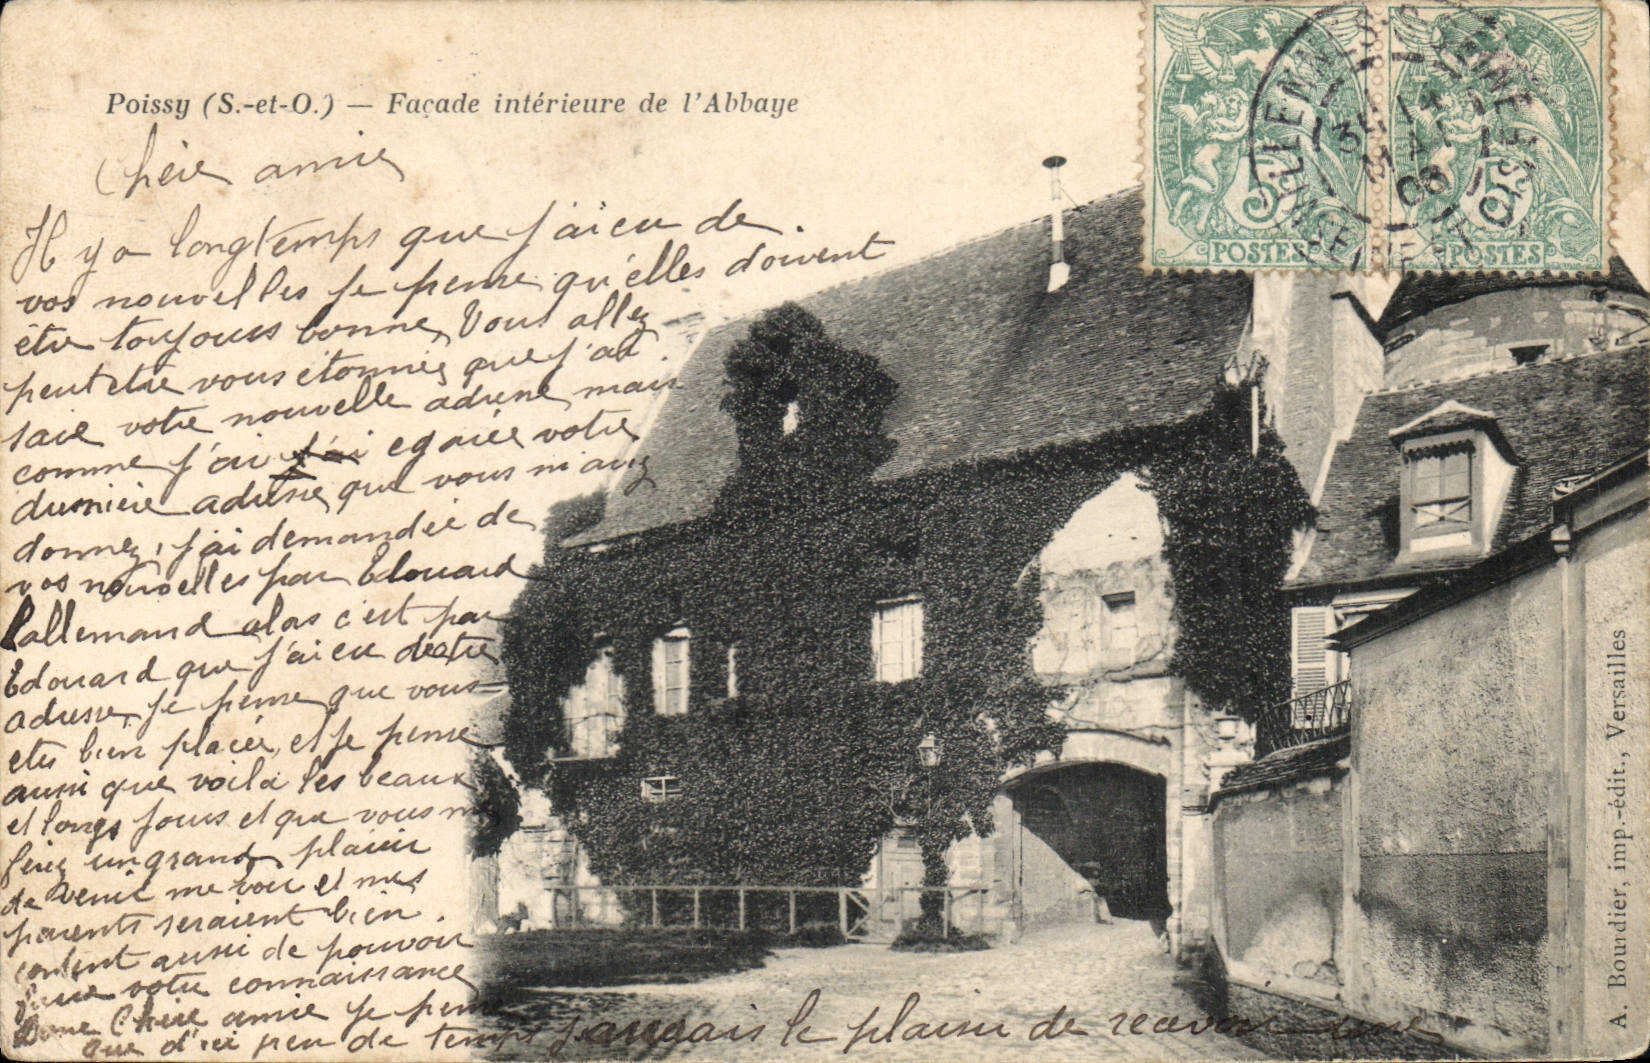 Poissy (S.-et-O.) — Façade intérieure de l'Abbaye
Chère amie
Il y a longtemps que j'ai eu de
vos nouvelles je pense qu'elles doivent
être toujours bonne, Vous allez
peut etre vous étonnés que j'ai
votre nouvelle adresse, mais
comme j'ai egarée votre
dernière adresse que vous m'aviez
donnez, j'ai demandée de
vos nouvelles par Edouard
Lallemand alors c'est par
Edouard que j'ai eu
adresse, je pense que vous
etes bien placée, et je pense
aussi que voila les beaux
et longs jours et que vous me
ferez un grand plaisir
de venir me voir et mes
parents seraient bien
content aussi de pouvoir
faire votre connaissance
Donc Chère amie je pense
que d'ici peu de temps j'aurais le plaisir de recevoir une
POSTES
POSTES
A. Bourdier, imp.-édit., Versailles